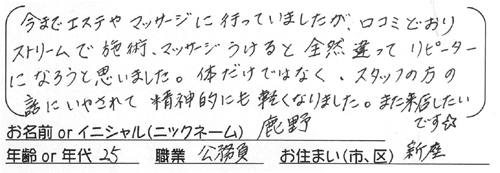 今までエステやマッサージに行っていましたが、口コミどおり
ストリームで施術、マッサージうけると全然違ってリピーター
になろうと思いました。体だけではなく、スタッフの方の
話にいやされて精神的にも軽くなりました。また来店したい
です☆
お名前orイニシャル(ニックネーム) 鹿野
年齢or年代 25 職業 公務員 お住まい(市、区) 新座